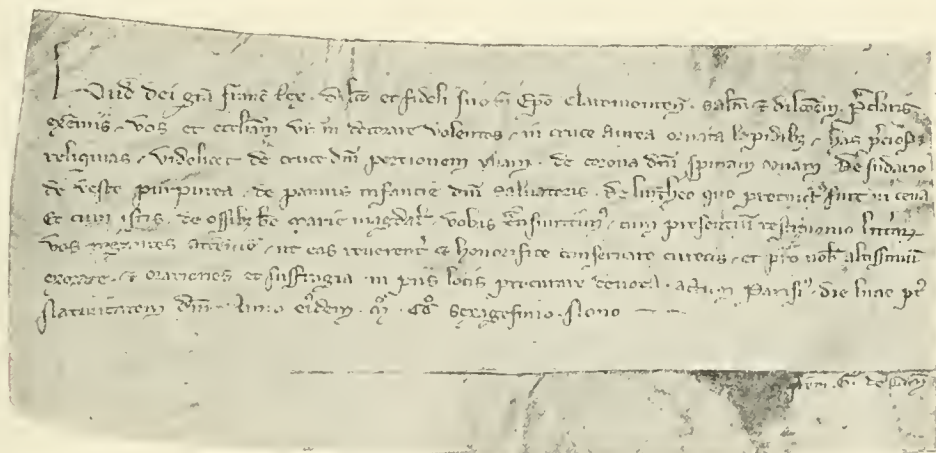 Lud dei grã franc Rex. Dilco et fideli suo G. Epõ Claromonteñ. saltm & dilcõem. Pclaris
exeniis, vos et eccliam vrãm decorare volentes, in cruce aurea ornata lapidibz, has pciosas
reliquias, videlicet de cruce dñi portionem unam. de corona dñi spinam unam. De sudario
de veste purpurea. de pannis infancie dñi salvatoris. de lintheo quo precinct' fuit in cena
Et cum istis, de ossibz bẽ marie magdal'. vobis tnsmittim', cum presentiũ testimonio litterar
vos rogantes, ut eas reverent' & honorifice conservare curetis, et pro nob altissimũ
exorare, & orationes et suffragia in piis locis procurare devota. actum Parisi'. die lune pt
Nativitatem dñi. Anno eidem. M. CCº sexagesimo. Nono